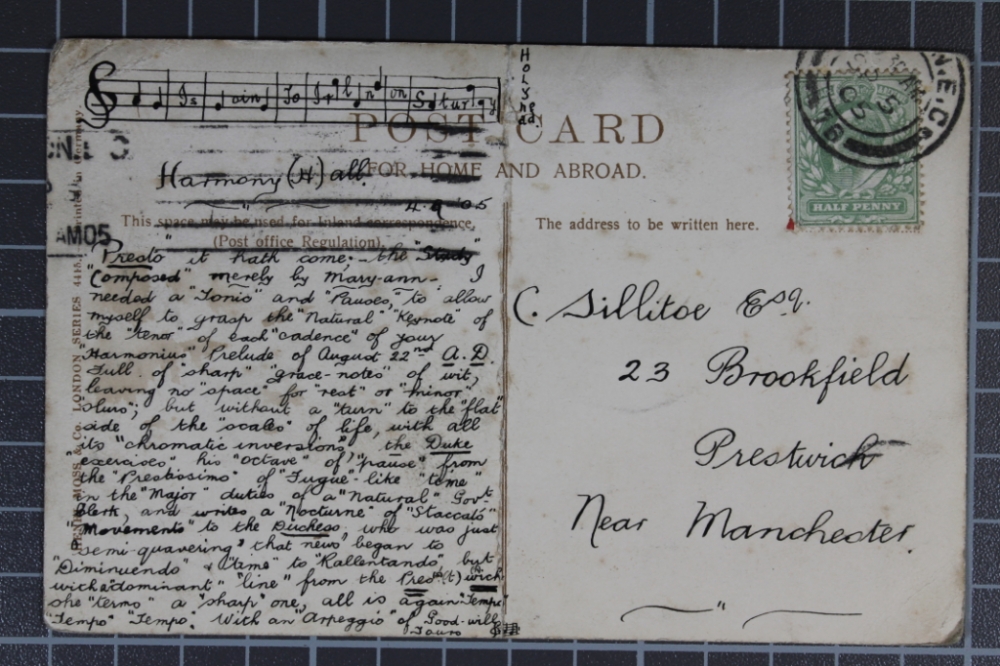 Is Join To Irland on Saturday
Holyhead.
POST CARD
FOR HOME AND ABROAD.
N.E.C
S
05
76
HALF PENNY
AM05
Harmony (H) all.
4.9.05
This space may be used for Inland correspondence,
(Post office Regulation).
The address to be written here.
HENRY MOSS & Co. LONDON SERIES Printed in Germany
"Presto" it hath come; - the "Study"
"Composed" merely by Mary-ann. I
needed a "Tonic" and "Pauses", to allow
myself to grasp the "Natural" "Keynote" of
the "tenor" of each "cadence" of your
"Harmonius" Prelude of August 22nd A.D.
Full of "sharp" "grace-notes" of wit,
leaving no "space" for "rest" or "minor"
"slurs"; but without a "turn" to the "flat"
side of the "scales" of life, with all
its "chromatic inversions", the Duke
"exercises" his "octave" of "pause" from
the "Prestissimo" of "Fugue"-like "time"
in the "Major" duties of a "Natural" Govt
Clerk, and writes a "Nocturne" of "Staccato"
Movements" to the Duchess, who was just
"semi-quavering" that news began to
"Diminuendo" & "time" to "Rallentando", but
with "dominant" "line" from the Prest) wich
she "terms" a "sharp" one, all is again "Tempo"
"Tempo" "Tempo". With an "Arpeggio" of Good-will
Tauro
C. Sillitoe Esq.
23 Brookfield
Prestwich
Near Manchester.